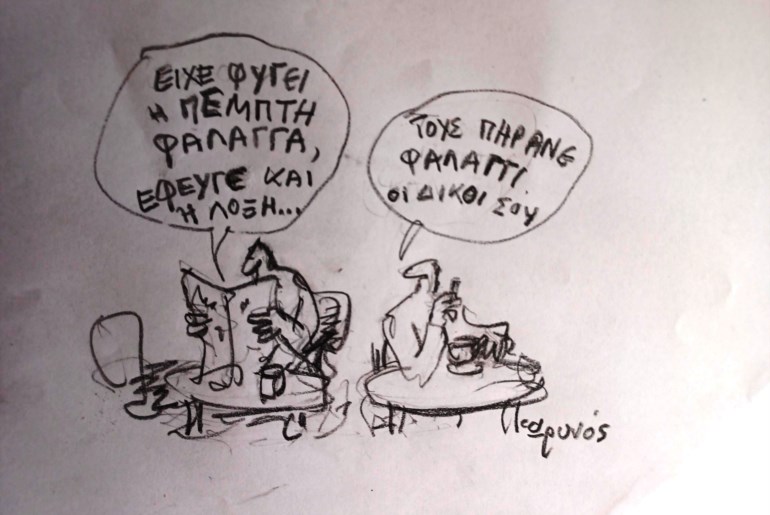 ΕΙΧΕ ΦΥΓΕΙ
Η ΠΕΜΠΤΗ
ΦΑΛΑΓΓΑ,
ΕΦΕΥΓΕ ΚΑΙ
Η ΛΟΞΗ...
ΤΟΥΣ ΠΗΡΑΝΕ
ΦΑΛΑΓΓΙ
ΟΙ ΔΙΚΟΙ ΣΟΥ